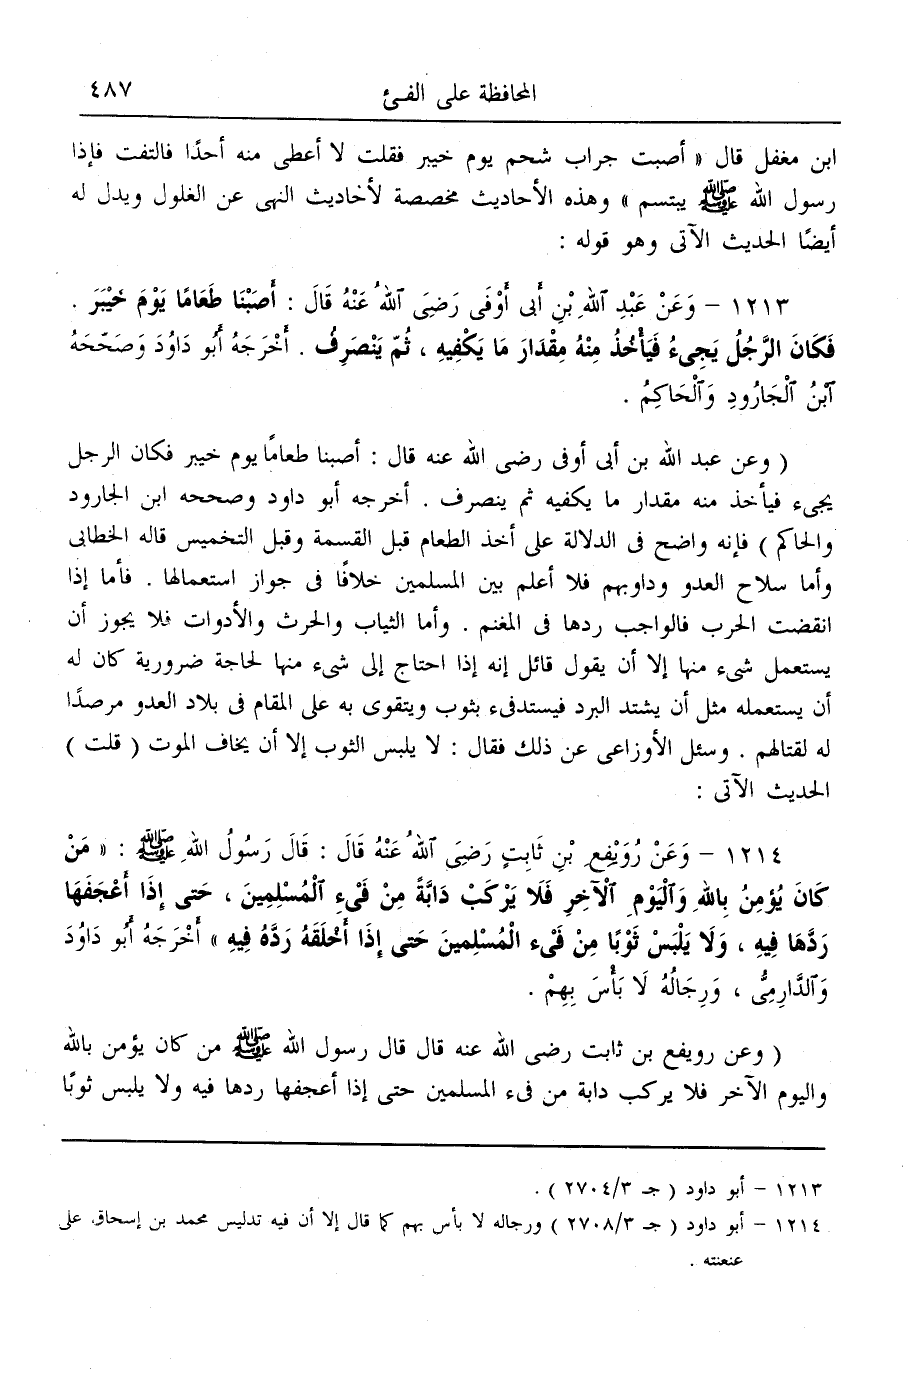 المحافظة على الفئ
٤٨٧
ابن مغفل قال « أصبت جراب شحم يوم خيبر فقلت لا أعطى منه أحدًا فالتفت فإذا
رسول الله ﷺ يبتسم » وهذه الأحاديث مخصصة لأحاديث النهى عن الغلول ويدل له
أيضًا الحديث الآتى وهو قوله :
١٢١٣ – وَعَنْ عَبْدِ ٱللهِ بْنِ أَبى أَوْفَى رَضِىَ ٱللهُ عَنْهُ قَالَ : أَصَبْنَا طَعَامًا يَوْمَ خَيْبَرَ .
فَكَانَ الرَّجُلُ يَجِىءُ فَيَأْخُذُ مِنْهُ مِقْدَارَ مَا يَكْفِيهِ ، ثُمّ يَنْصَرِفُ . أَخْرَجَهُ أَبُو دَاوُدَ وَصَحّحَهُ
ٱبْنُ ٱلْجَارُودِ وَٱلْحَاكِمُ .
( وعن عبد الله بن أبى أوفى رضى الله عنه قال : أصبنا طعامًا يوم خيبر فكان الرجل
يجىء فيأخذ منه مقدار ما يكفيه ثم ينصرف . أخرجه أبو داود وصححه ابن الجارود
والحاكم ) فإنه واضح فى الدلالة على أخذ الطعام قبل القسمة وقبل التخميس قاله الخطابى
وأما سلاح العدو ودوابهم فلا أعلم بين المسلمين خلافًا فى جواز استعمالها . فأما إذا
انقضت الحرب فالواجب ردها فى المغنم . وأما الثياب والحرث والأدوات فلا يجوز أن
يستعمل شىء منها إلا أن يقول قائل إنه إذا احتاج إلى شىء منها لحاجة ضرورية كان له
أن يستعمله مثل أن يشتد البرد فيستدفىء بثوب ويتقوى به على المقام فى بلاد العدو مرصدًا
له لقتالهم . وسئل الأوزاعى عن ذلك فقال : لا يلبس الثوب إلا أن يخاف الموت ( قلت )
الحديث الآتى :
١٢١٤ – وَعَنْ رُوَيْفِعِ بْنِ ثَابِتٍ رَضِىَ ٱللهُ عَنْهُ قَالَ : قَالَ رَسُولُ اللهِ ﷺ : « مَنْ
كَانَ يُؤْمِنُ بِاللهِ وَٱلْيَوْمِ ٱلْآخِرِ فَلَا يَرْكَبْ دَابَّةً مِنْ فَىْءِ ٱلْمُسْلِمِينَ ، حَتى إِذَا أَعْجَفَهَا
رَدَّهَا فِيهِ ، وَلَا يَلْبَسْ ثَوْبًا مِنْ فَىْءِ الْمُسْلِمِينَ حَتى إِذَا أَخْلَقَهُ رَدَّهُ فِيهِ » أَخْرَجَهُ أَبُو دَاوُدَ
وَٱلدَّارِمِىُّ ، وَرِجَالُهُ لَا بَأْسَ بِهِمْ .
( وعن رويفع بن ثابت رضى الله عنه قال قال رسول الله ﷺ من كان يؤمن بالله
واليوم الآخر فلا يركب دابة من فىء المسلمين حتى إذا أعجفها ردها فيه ولا يلبس ثوبًا
١٢١٣ – أبو داود ( جـ ٢٧٠٤/٣ ) .
١٢١٤ – أبو داود ( جـ ٢٧٠٨/٣ ) ورجاله لا بأس بهم كما قال إلا أن فيه تدليس محمد بن إسحاق. على
عنعنته .